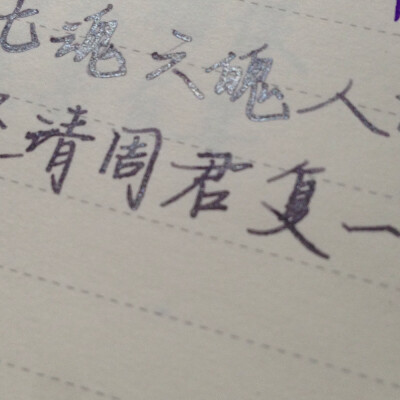 魂六魄人
请周君复一